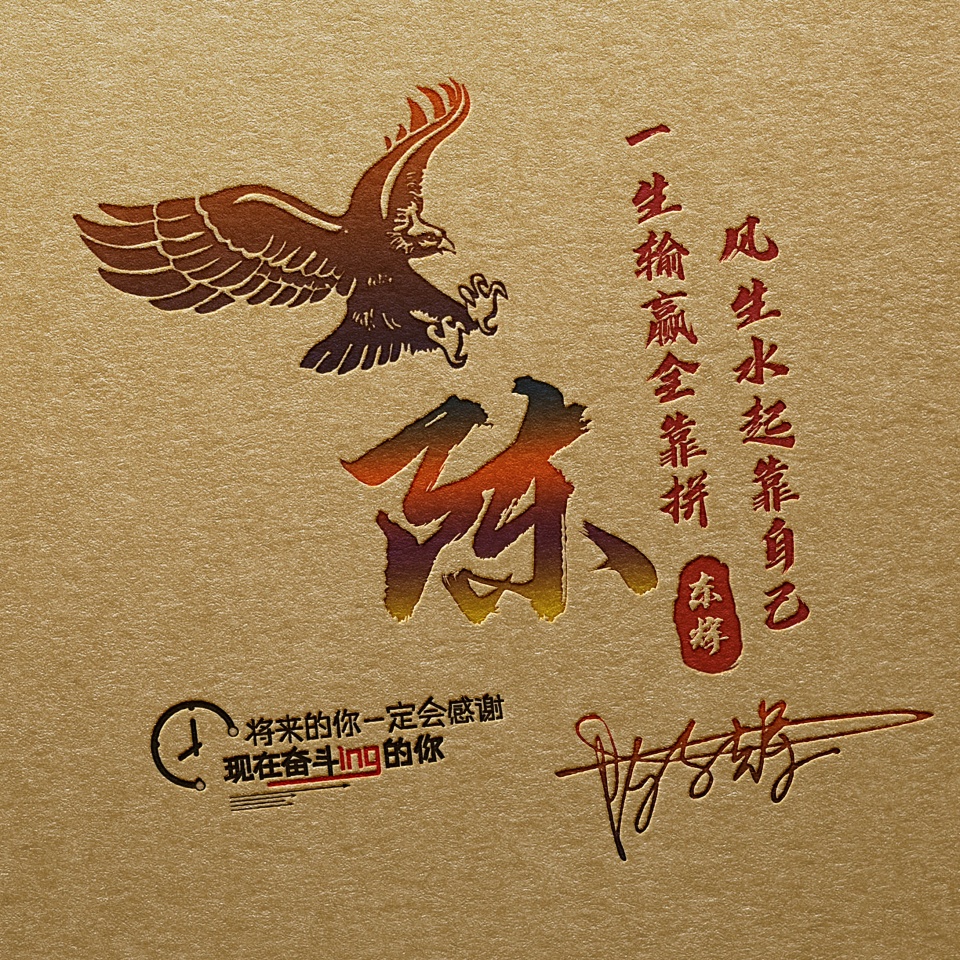 风生水起靠自己
一生输赢全靠拼
陈
东辉
将来的你一定会感谢
现在奋斗ing的你
陈东辉